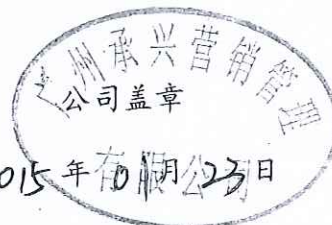 广州承兴营销管理
公司盖章
有限公司
2015年01月23日